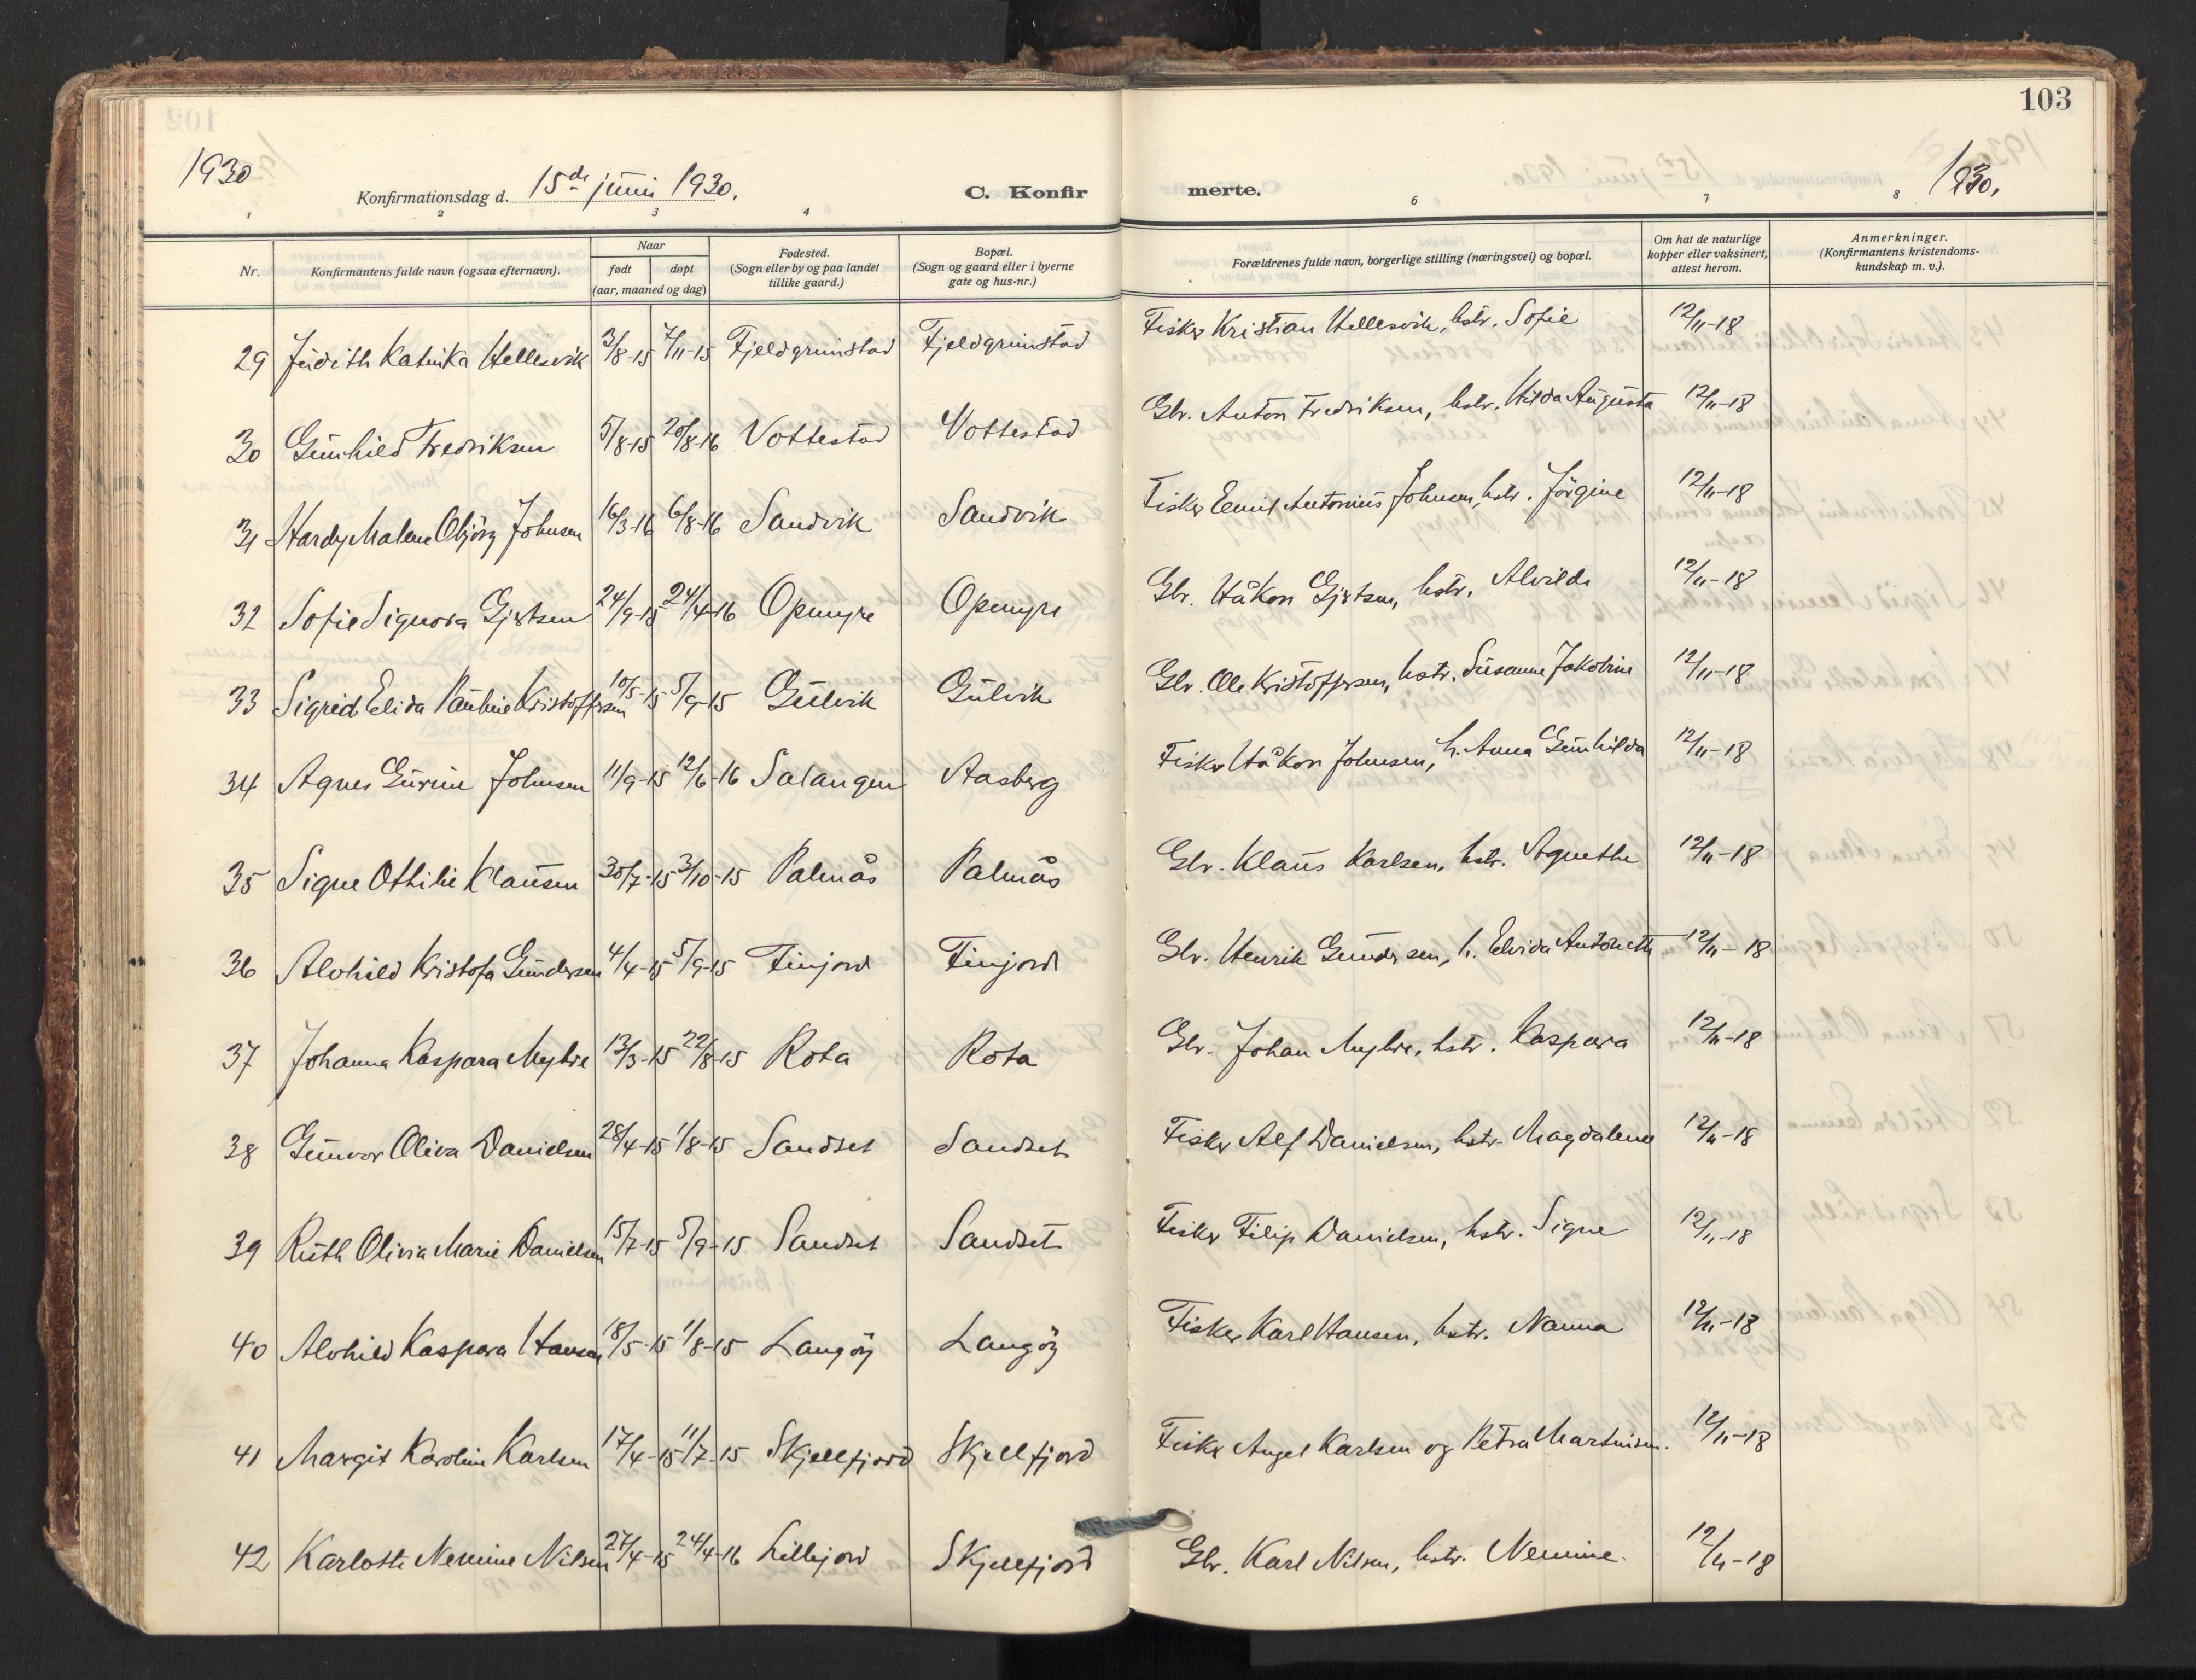 103
1930
Konfirmationsdag d. 15de juni 1930.
C. Konfir
merte.
1930.
1 2 3 4 6 7 8
Nr.
Konfirmantens fulde navn (ogsaa efternavn).
Naar
født døpt
(aar, maaned og dag)
Fødested.
(Sogn eller by og paa landet
tillike gaard.)
Bopæl.
(Sogn og gaard eller i byerne
gate og hus-nr.)
Forældrenes fulde navn, borgerlige stilling (næringsvei) og bopæl.
Om hat de naturlige
kopper eller vaksinert,
attest herom.
Anmerkninger.
(Konfirmantens kristendoms-
kundskap m. v.).
29 Judith Katinka Hellesvik 3/8-15 7/11-15 Fjeldgrimstad Fjeldgrimstad Fisker Kristian Hellesvik, hstr. Sofie 12/11-18
30 Gunhild Fredriksen 5/8-15 20/8-16 Vottestad Vottestad Gbr. Anton Fredriksen, hstr. Hilda Augusta 12/11-18
31 Hardy Malene Objörg Johnsen 16/3-16 6/8-16 Sandvik Sandvik Fisker Emil Antonius Johnsen, hstr. Jörgine 12/11-18
32 Sofie Signora Gjertsen 24/9-15 24/4-16 Opmyre Opmyre Gbr. Håkon Gjertsen, hstr. Alvilde 12/11-18
33 Sigrid Elida Pauline Kristoffersen 10/5-15 5/9-15 Gulvik Gulvik Gbr. Ole Kristoffersen, hstr. Susanne Jakobine 12/11-18
34 Agnes Gurine Johnsen 11/9-15 12/6-16 Salangen Aasberg Fisker Håkon Johnsen, h. Anna Gunhilda 12/11-18
35 Signe Othilie Klausen 30/7-15 3/10-15 Palmås Palmås Gbr. Klaus Karlsen, hstr. Agnethe 12/11-18
36 Alvhild Kristofa Gundersen 4/4-15 5/9-15 Finjord Finjord Gbr. Henrik Gundersen, h. Elvida Antonette 12/11-18
37 Johanna Kaspara Myhre 13/3-15 22/8-15 Rota Rota Gbr. Johan Myhre, hstr. Kaspara 12/11-18
38 Gunvor Oliva Danielsen 28/4-15 1/8-15 Sandset Sandset Fisker Alf Danielsen, hstr. Magdalene 12/11-18
39 Ruth Olivia Marie Danielsen 15/7-15 5/9-15 Sandset Sandset Fisker Filip Danielsen, hstr. Signe 12/11-18
40 Alvhild Kaspara Hansen 18/5-15 1/8-15 Langöy Langöy Fisker Karl Hansen, hstr. Nanna 12/11-18
41 Margit Karoline Karlsen 17/4-15 11/7-15 Skjellfjord Skjellfjord Fisker Angel Karlsen og Petra Martinsen. 12/11-18
42 Karlotte Nermine Nilsen 27/4-15 24/4-16 Lillejord Skjellfjord Gbr. Karl Nilsen, hstr. Nermine. 12/11-18